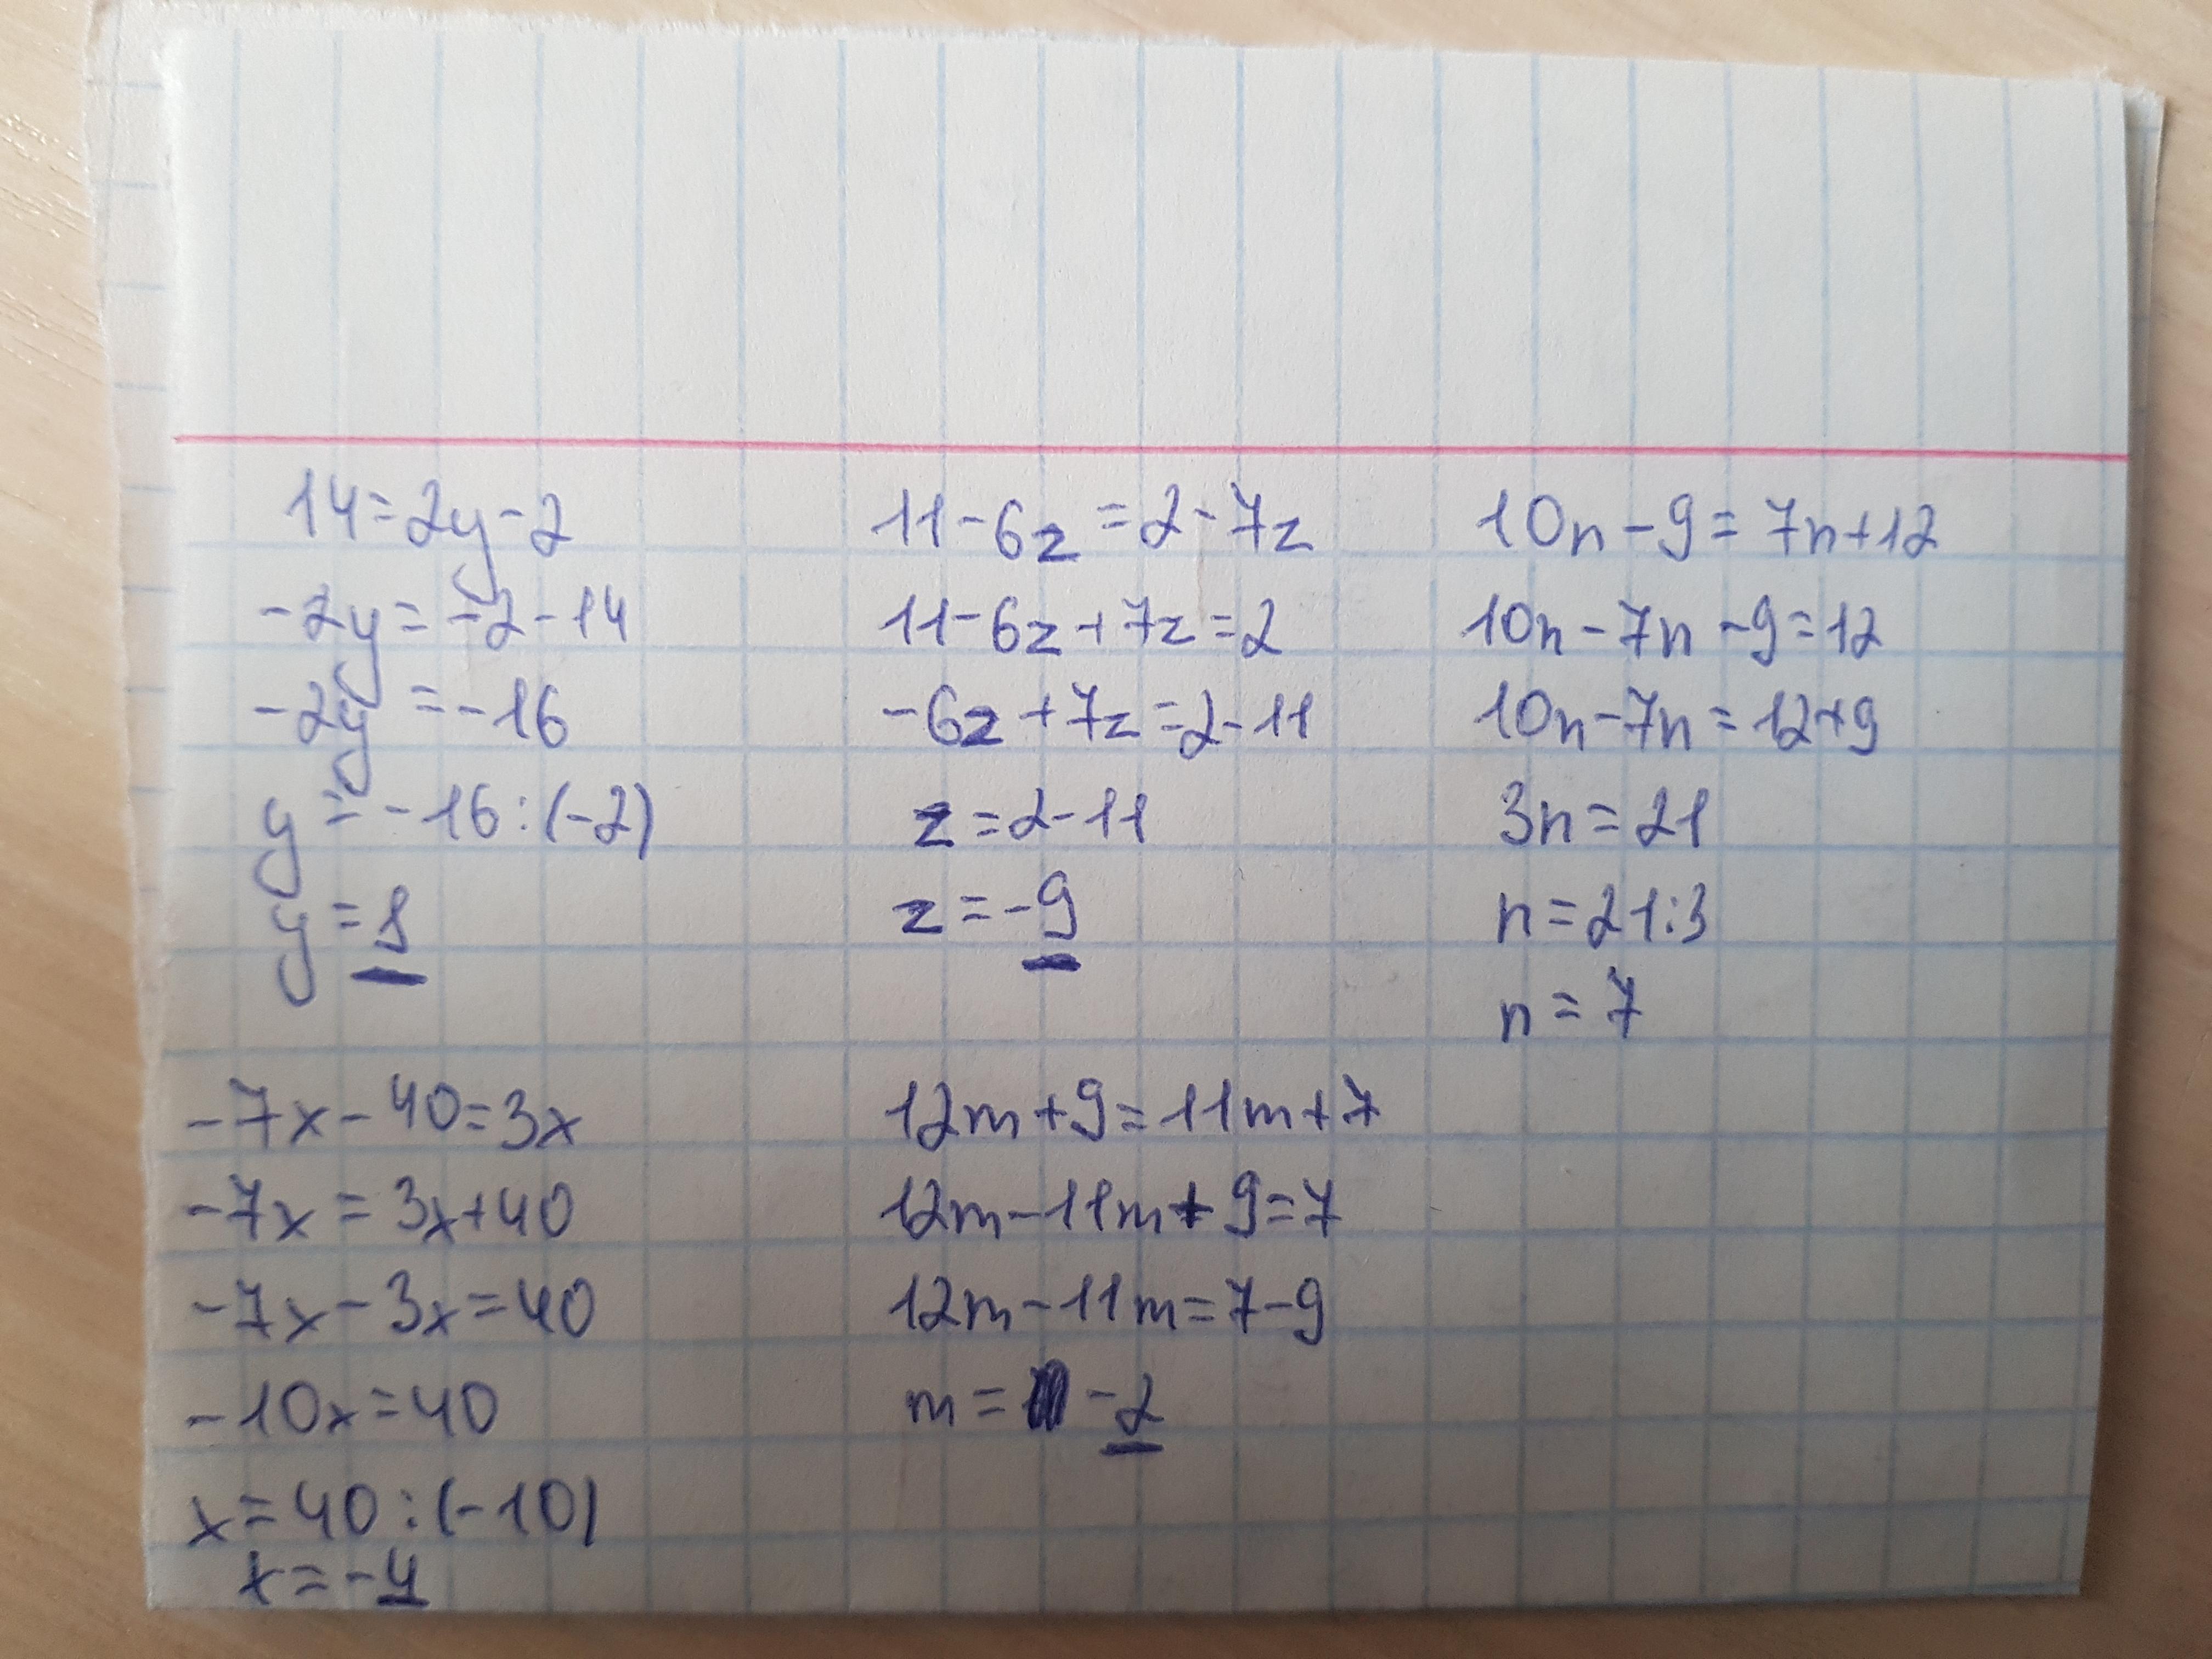 14=2y-2
-2y=-2-14
-2y=-16
y=-16:(-2)
y=8
11-6z=2-7z
11-6z+7z=2
-6z+7z=2-11
z=2-11
z=-9
10n-9=7n+12
10n-7n-9=12
10n-7n=12+9
3n=21
n=21:3
n=7
-7x-40=3x
-7x=3x+40
-7x-3x=40
-10x=40
x=40:(-10)
x=-4
12m+9=11m+7
12m-11m+9=7
12m-11m=7-9
m=-2